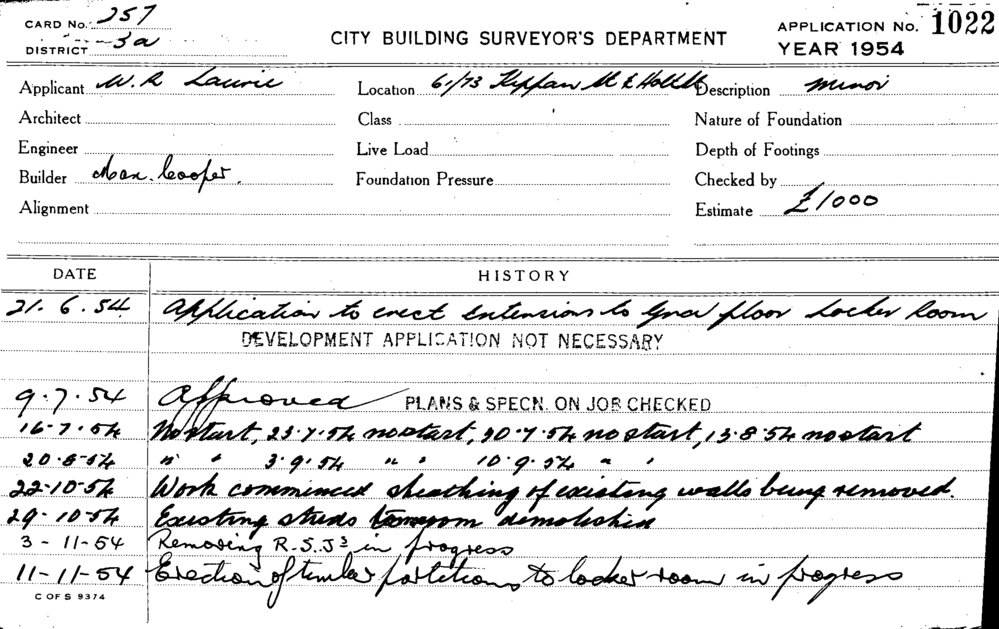 CARD No. 257
DISTRICT 3a
CITY BUILDING SURVEYOR'S DEPARTMENT
APPLICATION No. 1022
YEAR 1954
Applicant W. R. Laurie Location 61/73 St E Hill Description minor
Architect Class Nature of Foundation
Engineer Live Load Depth of Footings
Builder Max. Cooper. Foundation Pressure Checked by
Alignment Estimate £1000
DATE HISTORY
21. 6. 54 Application to erect extensions to Grd floor Locker Room
DEVELOPMENT APPLICATION NOT NECESSARY
9.7.54 Approved PLANS & SPECN. ON JOB CHECKED
16-7.54 No start, 23.7.54 no start, 30.7.54 no start, 13.8.54 no start
20.8.54 " " 3.9.54 " " 10.9.54 " "
22-10-54 Work commenced sheathing of existing walls being removed.
29-10-54 Existing studs demolished
3-11-54 Removing R.S.Js in progress
11-11-54 Erection of timber partitions to locker room in progress
C OF S 9374